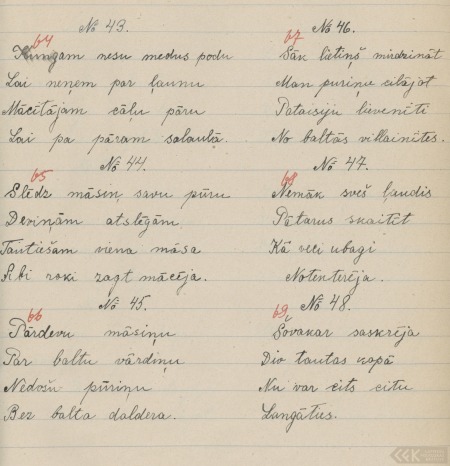 № 43.
64
Kungam nesu medus podu
Lai neņem par ļaunu
Mācītājam cāļu pāru
Lai pa pāram salaulā.
№ 44.
65
Slēdz māsiņ savu pūru
Deviņām atslēgām
Tautiešam viena māsa
Abi roki zagt mācēja.
№ 45.
66
Pārdevu māsiņu
Par baltu vārdiņu
Nedošu pūriņu
Bez balta daldera.
№ 46.
67
Sāk lietiņš mirdzināt
Man puriņu cilājot
Pataisiju lievenīti
No baltās villainītes.
№ 47.
68
Nemāk sveš ļaudis
Pātarus skaitīt
Kā veci ubagi
Notenterēja.
№ 48.
69
Šovakar saskrēja
Div tautas kopā
Nu var cits citu
Langāties.